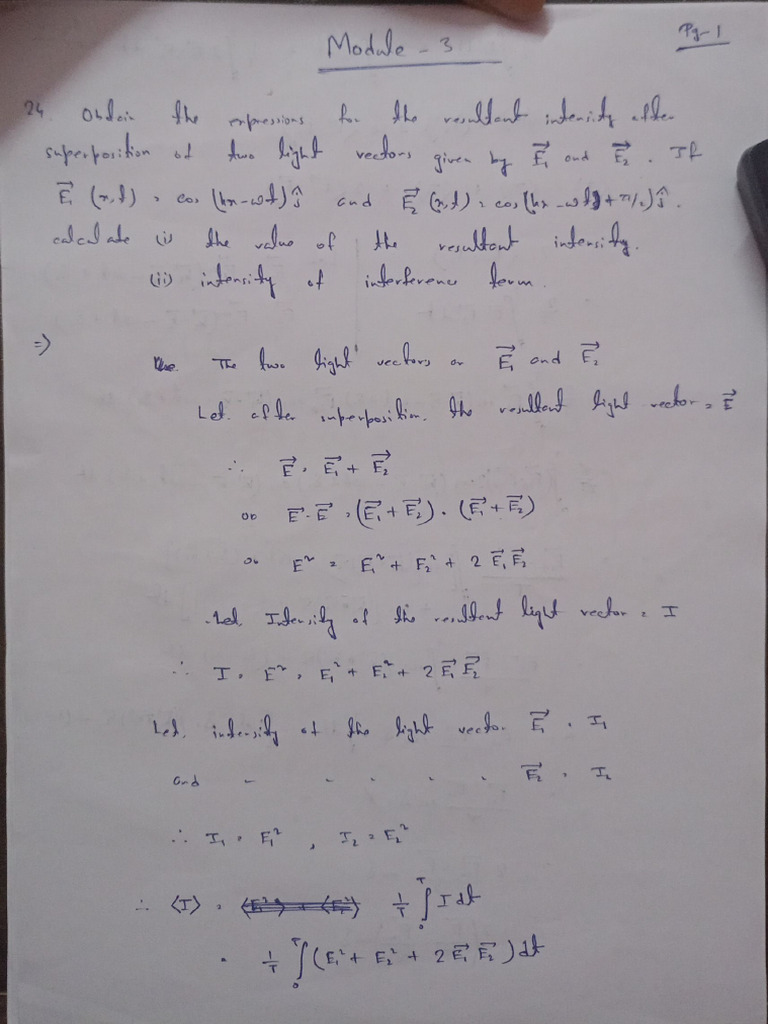 Module - 3
Pg-1
24. Obtain the expressions for the resultant intensity after
superposition of two light vectors given by E⃗₁ and E⃗₂. If
E⃗₁ (x,t) = cos (kx-ωt) ĵ and E⃗₂ (x,t) = cos (kx-ωt + π/2) ĵ.
calculate (i) the value of the resultant intensity.
(ii) intensity of interference term.
⇒ The two light vectors are E⃗₁ and E⃗₂
Let. after superposition. the resultant light vector = E⃗
∴ E⃗ = E⃗₁ + E⃗₂
or E⃗·E⃗ = (E⃗₁ + E⃗₂) · (E⃗₁ + E⃗₂)
or E² = E₁² + E₂² + 2 E⃗₁E⃗₂
Let. Intensity of the resultant light vector = I
∴ I = E² = E₁² + E₂² + 2 E⃗₁E⃗₂
Let, intensity of the light vector E⃗₁ = I₁
and " " " " " E⃗₂ = I₂
∴ I₁ = E₁² , I₂ = E₂²
∴ ⟨I⟩ = 1/T ∫₀ᵀ I dt
= 1/T ∫₀ᵀ (E₁² + E₂² + 2 E⃗₁E⃗₂) dt